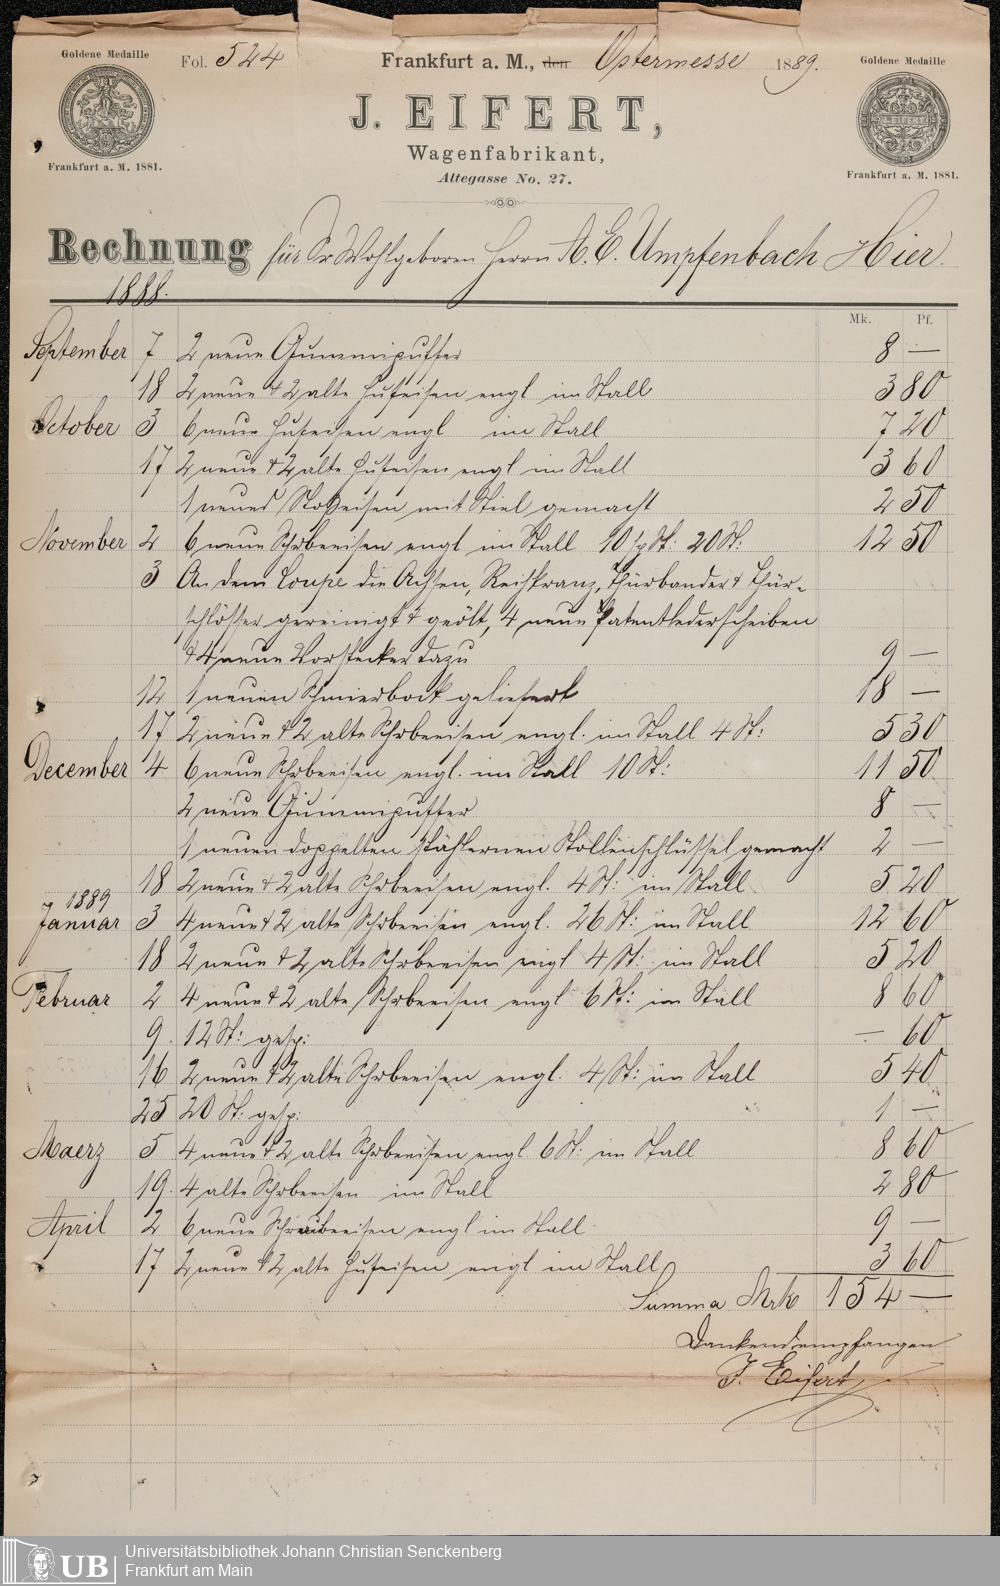 Goldene Medaille
Frankfurt a. M. 1881.
Fol. 524
Frankfurt a. M., den Ostermesse 1889.
Goldene Medaille
J. EIFERT
Frankfurt a. M. 1881.
J. EIFERT,
Wagenfabrikant,
Altegasse No. 27.
Rechnung für Sr Wohlgeboren Herrn A. E. Umpfenbach Hier.
1888.
Mk. Pf.
September 7 2 neue Gummipuffer 8 —
18 2 neue & 2 alte Hufeisen engl im Stall 3 80
October 3 6 neue Hufeisen engl im Stall 7 20
17 2 neue & 2 alte Hufeisen engl im Stall 3 60
1 neues Stoßeisen mit Stiel gemacht 2 50
November 2 6 neue Schrbeneisen engl im Stall 10 St: 20 St: 12 50
3 An dem Coupe die Achsen, Reihkranz, Thürbänder & Thür-
schlösser gereinigt & geölt, 4 neue Patentlederscheiben
& 4 neue Vorstecker dazu 9 —
12 1 neuen Schmierbock geliefert 18 —
17 2 neue & 2 alte Schrbeneisen engl. im Stall 4 St: 5 30
December 4 6 neue Schrbeneisen engl. im Stall 10 St: 11 50
2 neue Gummipuffer 8 —
1 neuen doppelten stählernen Stollenschlüssel gemacht 2 —
18 2 neue & 2 alte Schrbeneisen engl. 4 St: im Stall 5 20
1889
Januar 3 4 neue & 2 alte Schrbeneisen engl. 26 St: im Stall 12 60
18 2 neue & 2 alte Schrbeneisen engl 4 St: im Stall 5 20
Februar 2 4 neue & 2 alte Schrbeneisen engl 6 St: im Stall 8 60
9. 12 St: gesp: — 60
16 2 neue & 2 alte Schrbeneisen engl. 4 St: im Stall 5 40
25 20 St: gesp: 1 —
Maerz 5 4 neue & 2 alte Schrbeneisen engl 6 St: im Stall 8 60
19. 4 alte Schrbeneisen im Stall 2 80
April 2 6 neue Schraubeneisen engl im Stall 9 —
17 2 neue & 2 alte Hufeisen engl im Stall 3 60
Summa Mrk 154 —
Dankend empfangen
J. Eifert
UB
Universitätsbibliothek Johann Christian Senckenberg
Frankfurt am Main